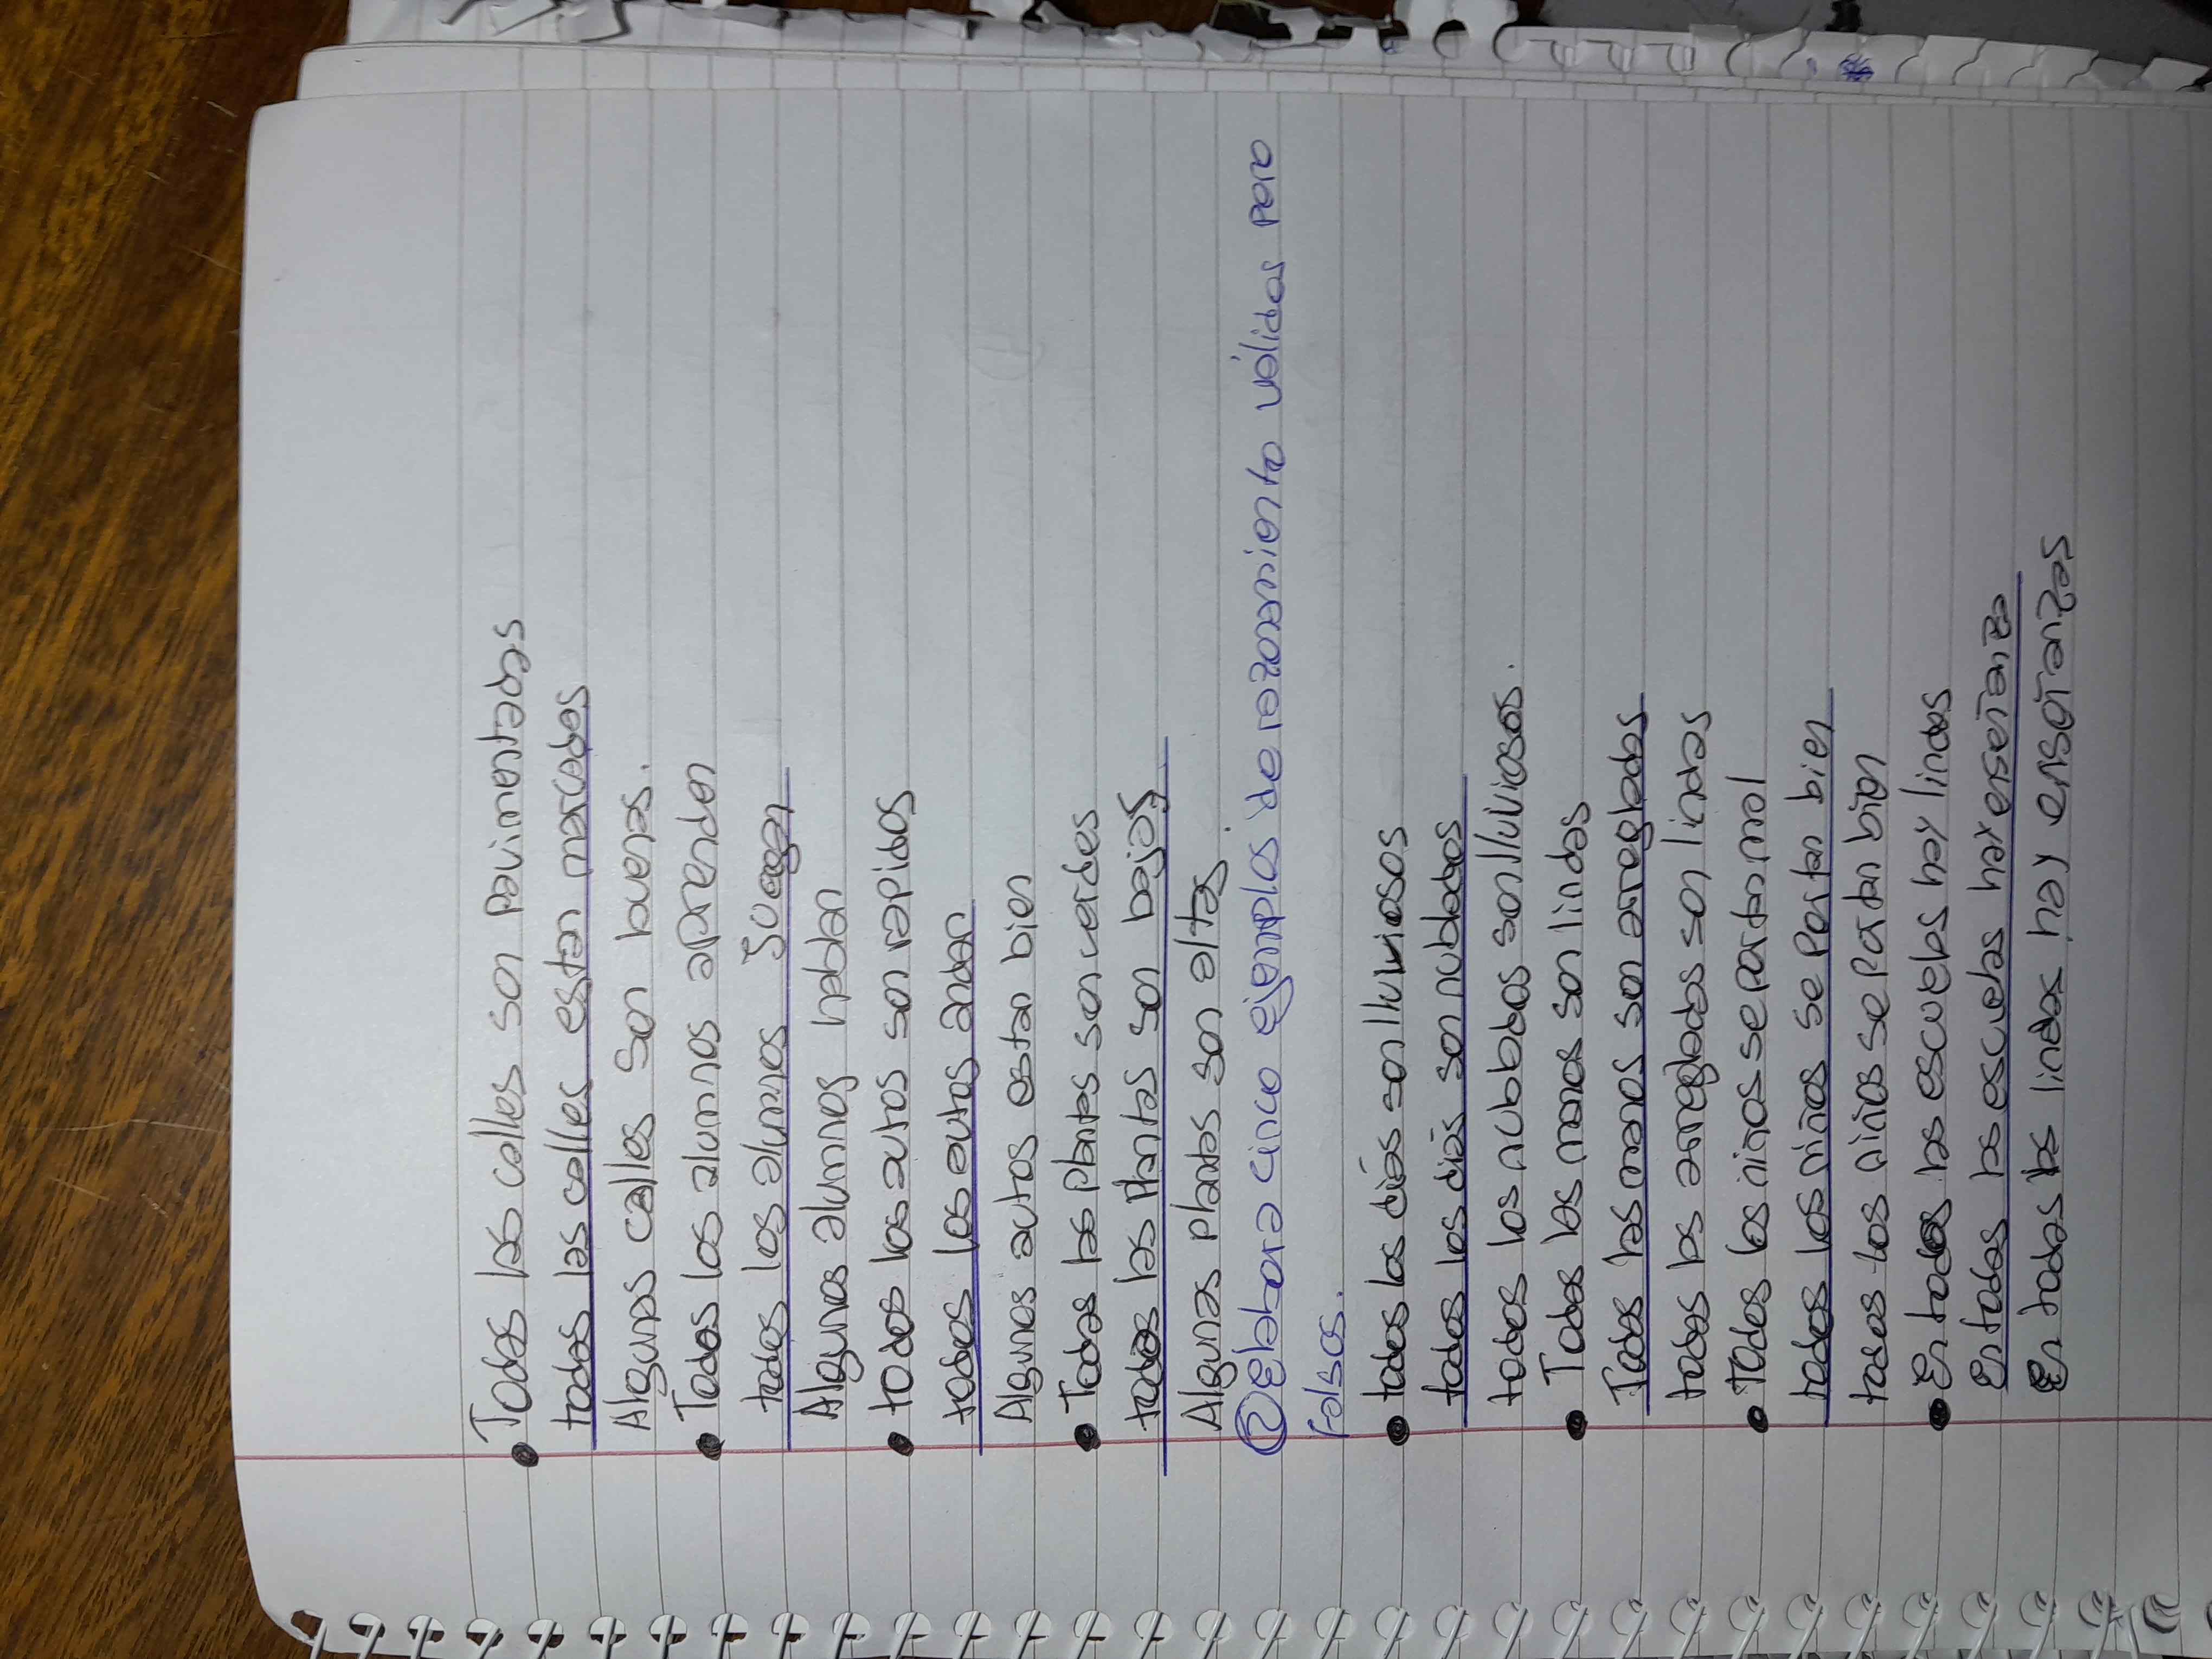 • Todas las calles son pavimentadas
todas las calles estan marcadas
Algunas calles son buenas.
• Todos los alumnos aprenden
todos los alumnos Juegan
Algunos alumnos hablan
• todos los autos son rapidos
todos los autos andan
Algunos autos estan bien
• Todas las plantas son verdes
todas las Plantas son bajas
Algunas plantas son altas.
② Elabora cinco ejemplos de razonamiento válidos pero
falsos.
• todos los diás son lluviosos
todos los diás son nublados
todos los nublados son lluviosos.
• Todas las manos son lindas
Todas las manos son arregladas
todas las arregladas son lindas
• Todos los niños se portan mal
todos los niños se Portan bien
todos los niños se Portan bien
• En todas las escuelas hay lindas
En todas las escuelas hay enseñanza
En todas las lindas hay enseñanzas